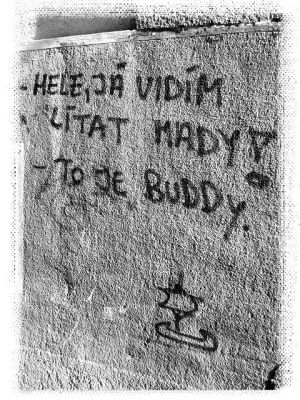 - HELE, JÁ VIDÍM
LÍTAT HADY!
- TO JE BUDDY.